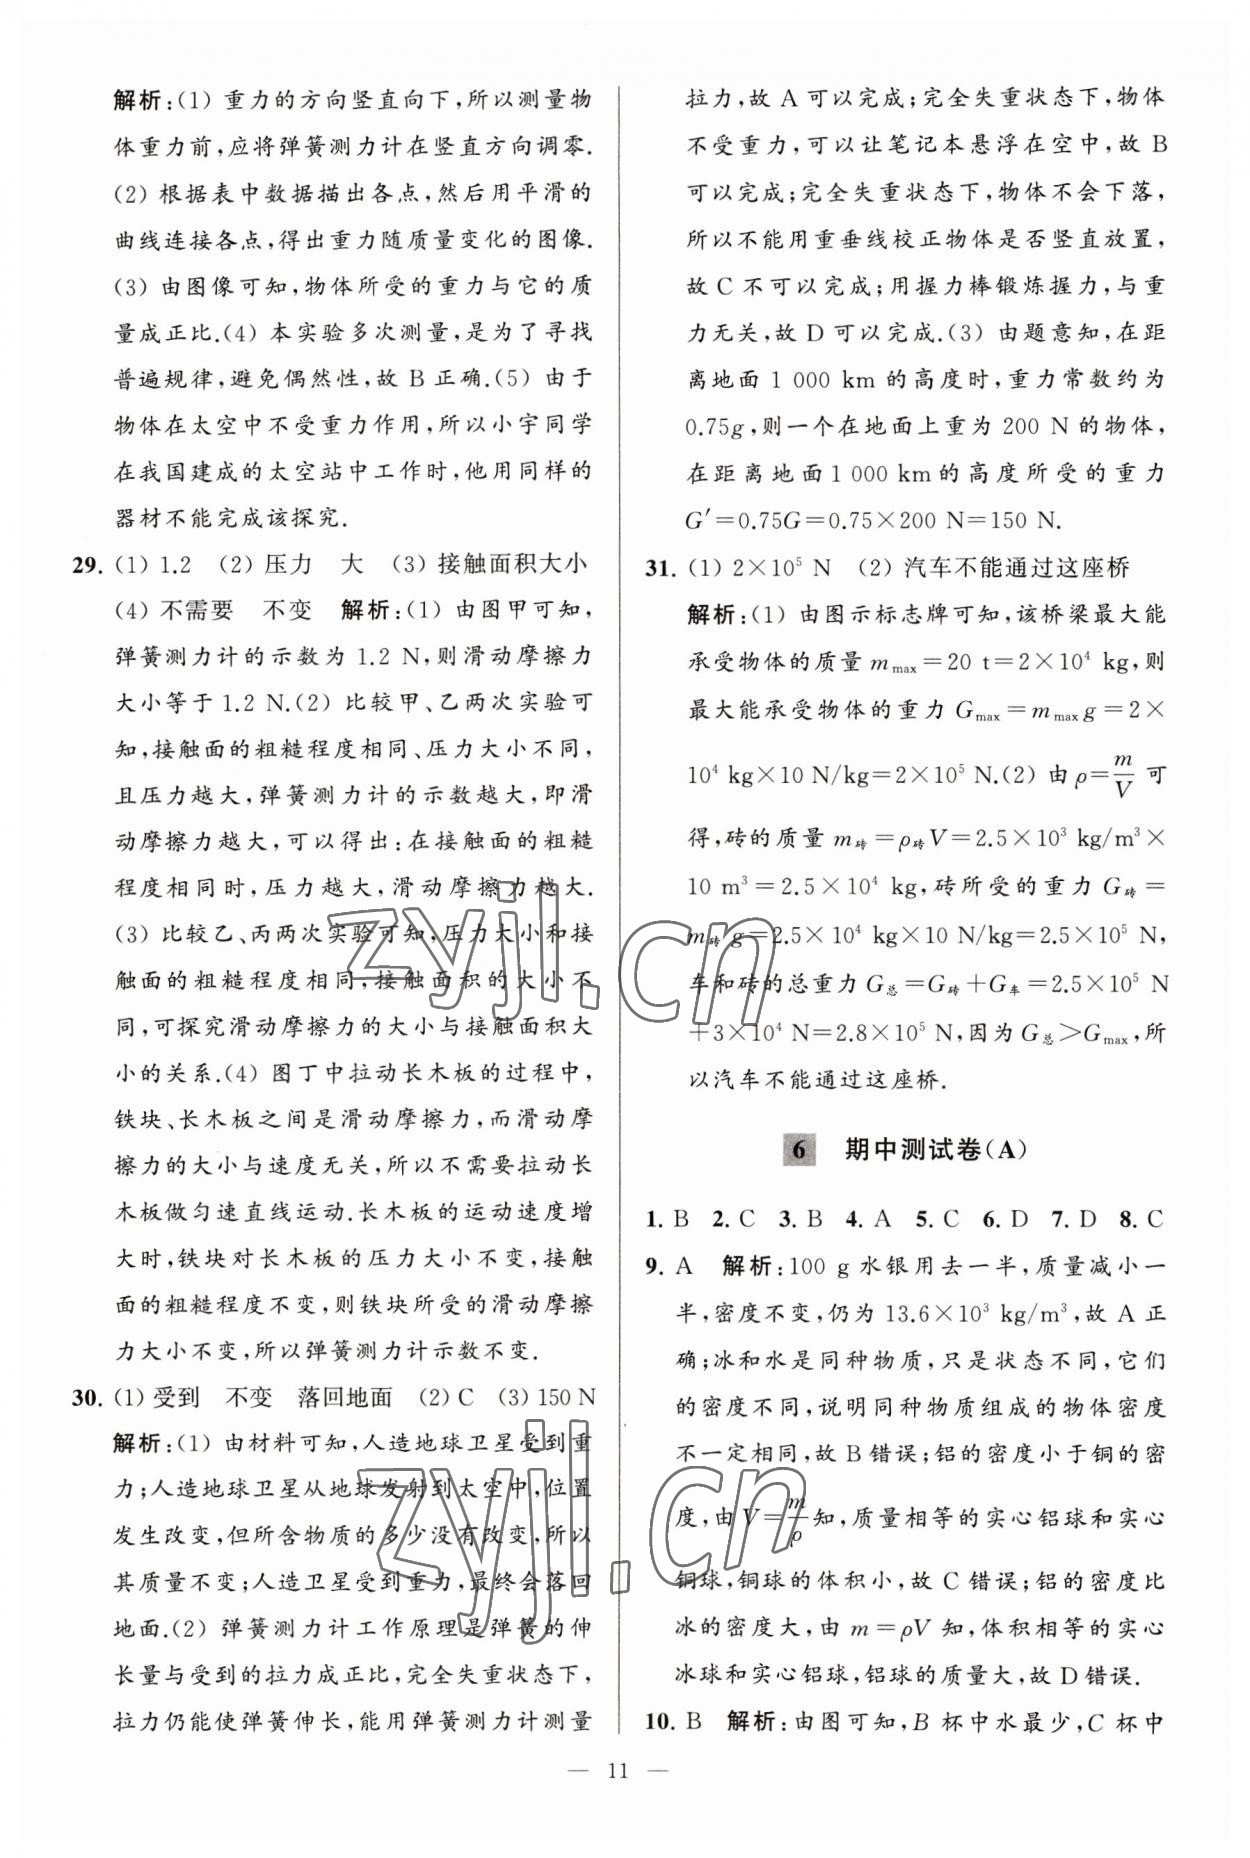 解析:(1) 重力的方向竖直向下,所以测量物
体重力前,应将弹簧测力计在竖直方向调零.
(2) 根据表中数据描出各点,然后用平滑的
曲线连接各点,得出重力随质量变化的图像.
(3) 由图像可知,物体所受的重力与它的质
量成正比.(4) 本实验多次测量,是为了寻找
普遍规律,避免偶然性,故 B 正确.(5) 由于
物体在太空中不受重力作用,所以小宇同学
在我国建成的太空站中工作时,他用同样的
器材不能完成该探究.
29. (1) 1.2 (2) 压力 大 (3) 接触面积大小
(4) 不需要 不变 解析:(1) 由图甲可知,
弹簧测力计的示数为 1.2 N,则滑动摩擦力
大小等于 1.2 N.(2) 比较甲、乙两次实验可
知,接触面的粗糙程度相同、压力大小不同,
且压力越大,弹簧测力计的示数越大,即滑
动摩擦力越大,可以得出:在接触面的粗糙
程度相同时,压力越大,滑动摩擦力越大.
(3) 比较乙、丙两次实验可知,压力大小和接
触面的粗糙程度相同,接触面积的大小不
同,可探究滑动摩擦力的大小与接触面积大
小的关系.(4) 图丁中拉动长木板的过程中,
铁块、长木板之间是滑动摩擦力,而滑动摩
擦力的大小与速度无关,所以不需要拉动长
木板做匀速直线运动.长木板的运动速度增
大时,铁块对长木板的压力大小不变,接触
面的粗糙程度不变,则铁块所受的滑动摩擦
力大小不变,所以弹簧测力计示数不变.
30. (1) 受到 不变 落回地面 (2) C (3) 150 N
解析:(1) 由材料可知,人造地球卫星受到重
力;人造地球卫星从地球发射到太空中,位置
发生改变,但所含物质的多少没有改变,所以
其质量不变;人造卫星受到重力,最终会落回
地面.(2) 弹簧测力计工作原理是弹簧的伸
长量与受到的拉力成正比,完全失重状态下,
拉力仍能使弹簧伸长,能用弹簧测力计测量
拉力,故 A 可以完成;完全失重状态下,物体
不受重力,可以让笔记本悬浮在空中,故 B
可以完成;完全失重状态下,物体不会下落,
所以不能用重垂线校正物体是否竖直放置,
故 C 不可以完成;用握力棒锻炼握力,与重
力无关,故 D 可以完成.(3) 由题意知,在距
离地面 1 000 km 的高度时,重力常数约为
0.75g,则一个在地面上重为 200 N 的物体,
在距离地面 1 000 km 的高度所受的重力
G′=0.75G=0.75×200 N=150 N.
31. (1) 2×10⁵ N (2) 汽车不能通过这座桥
解析:(1) 由图示标志牌可知,该桥梁最大能
承受物体的质量 m_max=20 t=2×10⁴ kg,则
最大能承受物体的重力 G_max=m_max g=2×
10⁴ kg×10 N/kg=2×10⁵ N.(2) 由 ρ=m/V 可
得,砖的质量 m_砖=ρ_砖V=2.5×10³ kg/m³×
10 m³=2.5×10⁴ kg,砖所受的重力 G_砖=
m_砖 g=2.5×10⁴ kg×10 N/kg=2.5×10⁵ N,
车和砖的总重力 G_总=G_砖+G_车=2.5×10⁵ N
+3×10⁴ N=2.8×10⁵ N,因为 G_总>G_max,所
以汽车不能通过这座桥.
6 期中测试卷(A)
1. B 2. C 3. B 4. A 5. C 6. D 7. D 8. C
9. A 解析:100 g 水银用去一半,质量减小一
半,密度不变,仍为 13.6×10³ kg/m³,故 A 正
确;冰和水是同种物质,只是状态不同,它们
的密度不同,说明同种物质组成的物体密度
不一定相同,故 B 错误;铝的密度小于铜的密
度,由 V=m/ρ 知,质量相等的实心铝球和实心
铜球,铜球的体积小,故 C 错误;铝的密度比
冰的密度大,由 m=ρV 知,体积相等的实心
冰球和实心铝球,铝球的质量大,故 D 错误.
10. B 解析:由图可知,B 杯中水最少,C 杯中
— 11 —
zyjl.cn
zyjl.cn